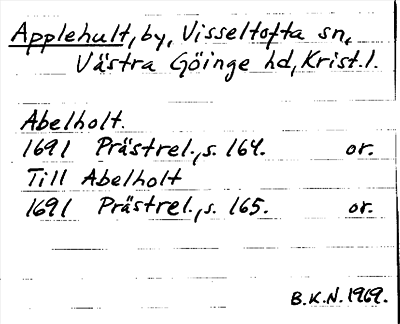 Applehult, by, Visseltofta sn,
Västra Göinge hd, Krist.l.
Abelholt.
1691 Prästrel., s. 164. or.
Till Abelholt
1691 Prästrel., s. 165. or.
B.K.N. 1969.